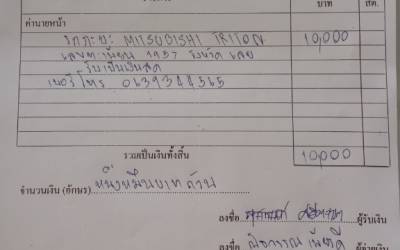 บาท สต.
ค่านายหน้า
รถกะบะ MITSUBISHI TRITON 10,000
เลขทะเบียน 1937 จังหวัด เลย
รับเป็นเงินสด
เบอร์โทร 0639344565
รวมเป็นเงินทั้งสิ้น 10,000
จำนวนเงิน (อักษร) หนึ่งหมื่นบาทถ้วน
ลงชื่อ ผู้รับเงิน
ลงชื่อ ผู้จ่ายเงิน